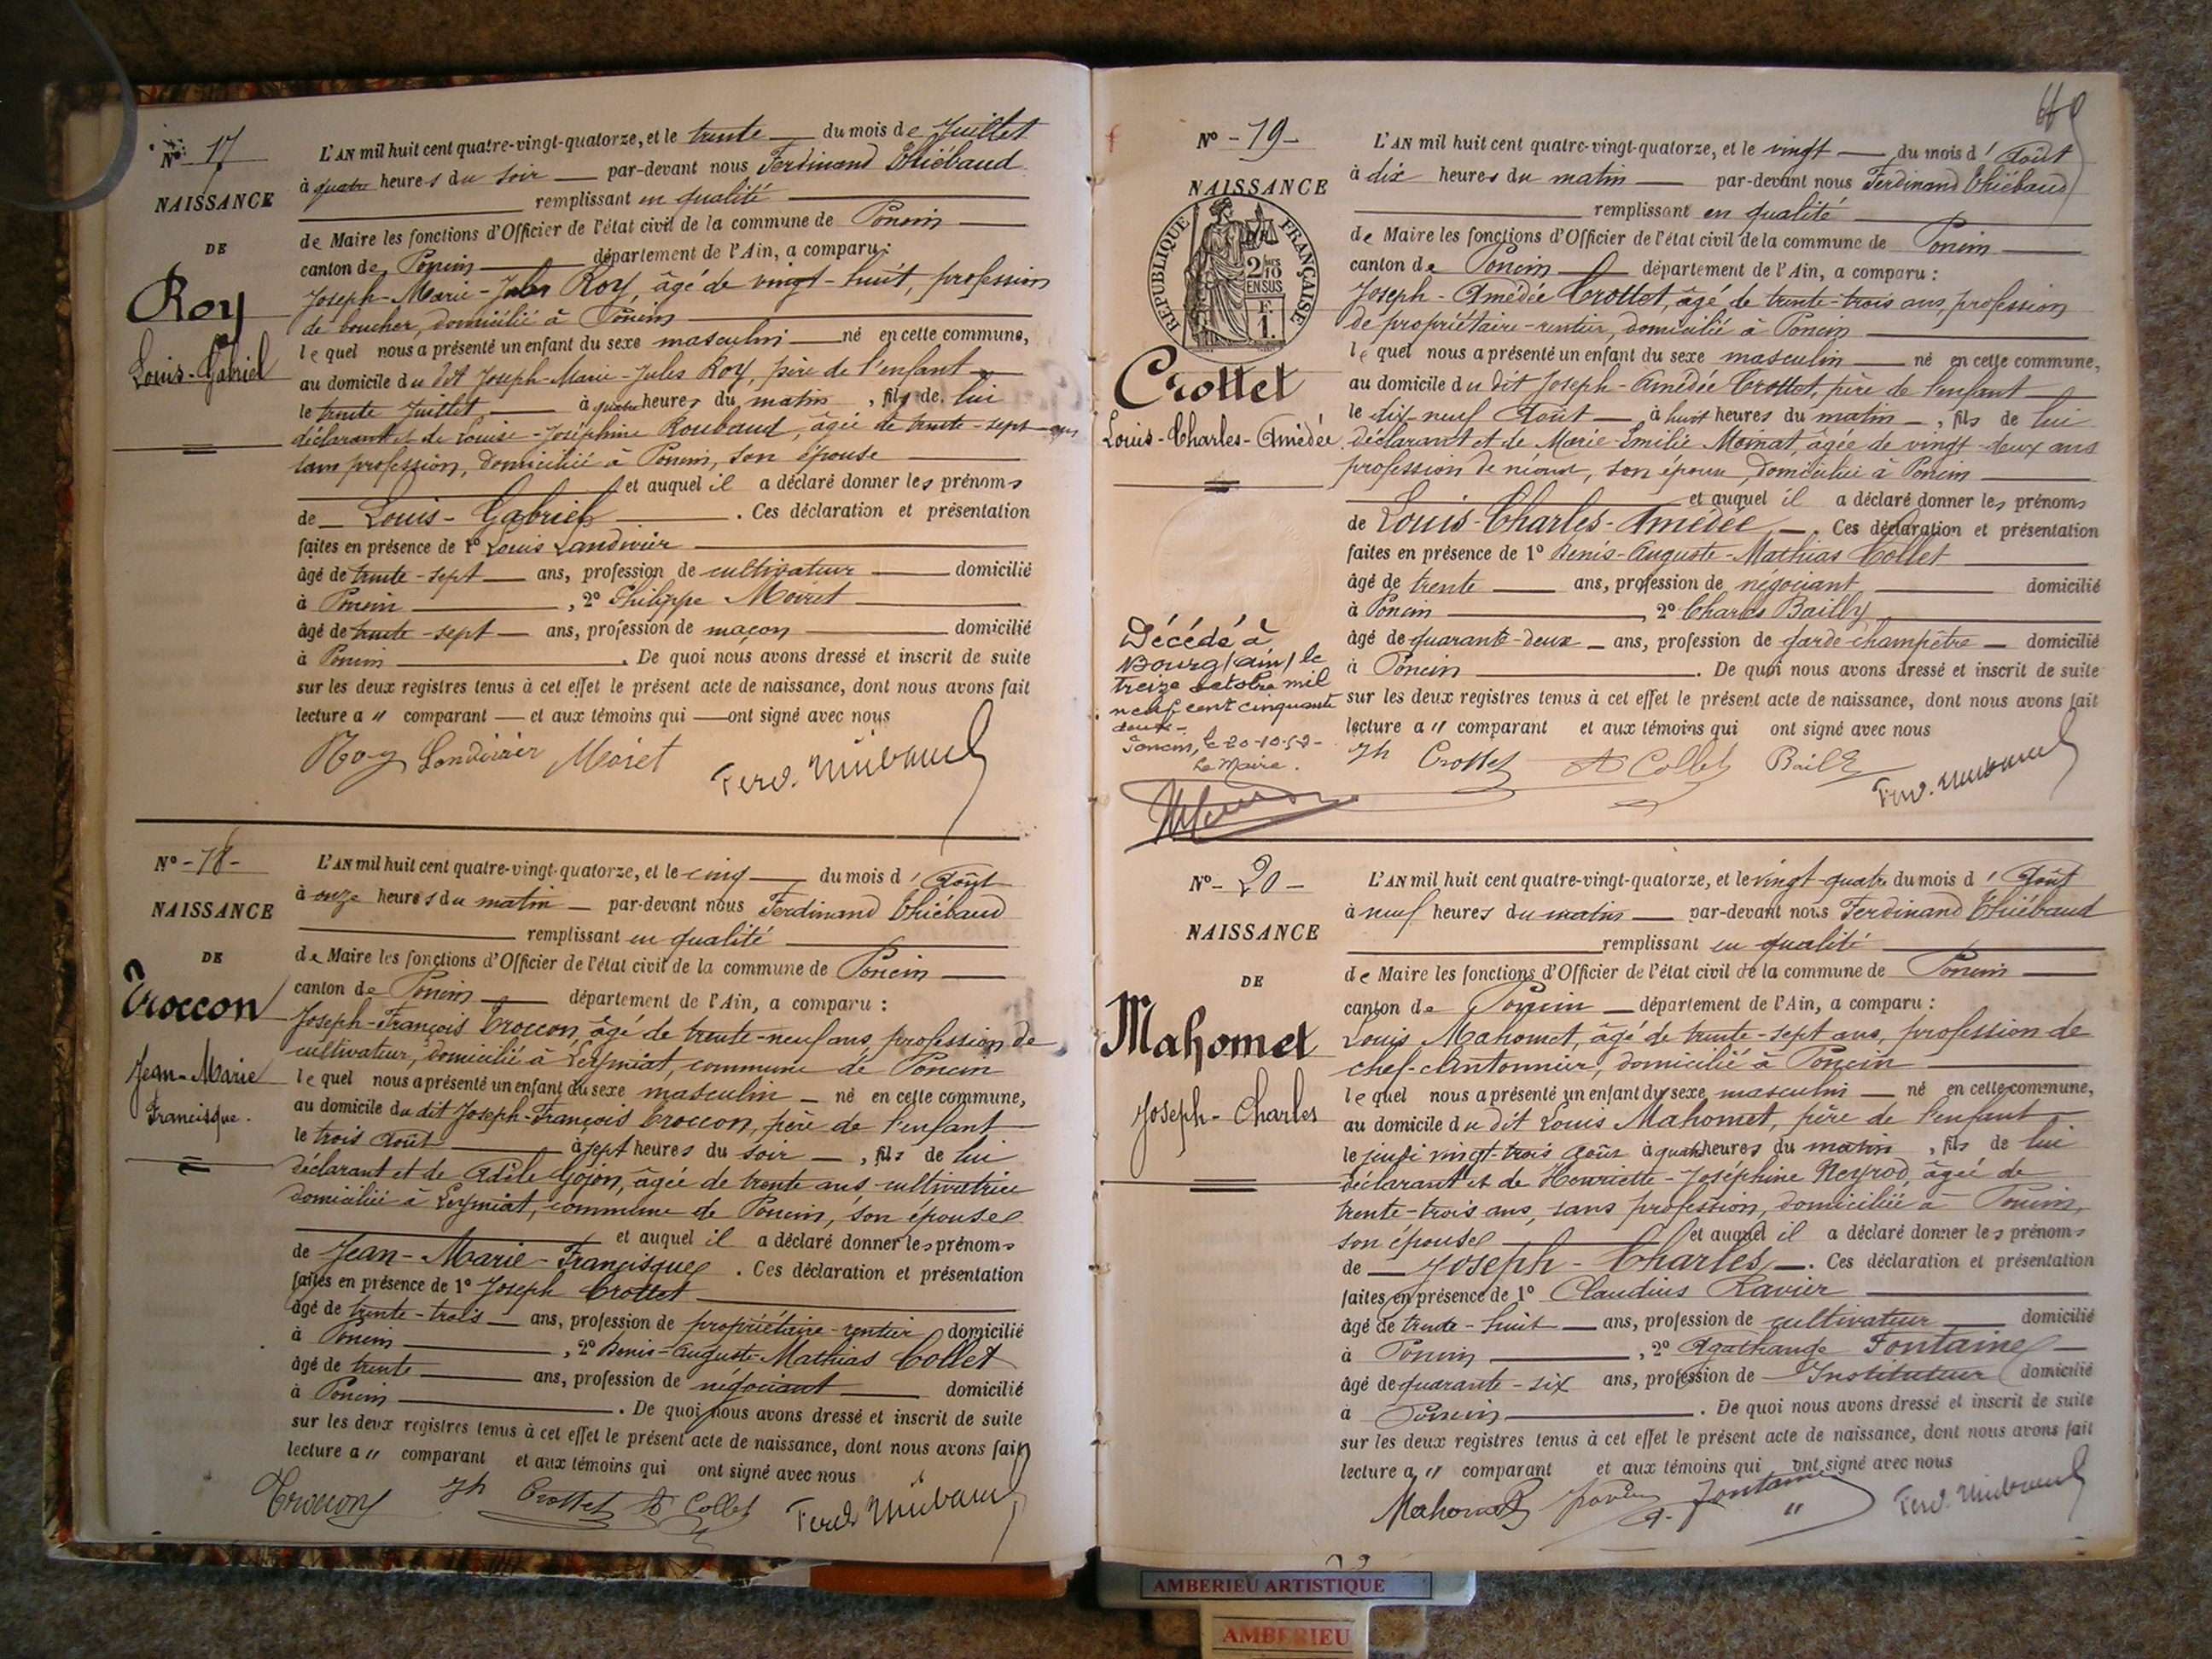 Nº 17
NAISSANCE
DE
Roy
Louis-Gabriel
L'AN mil huit cent quatre-vingt-quatorze, et le trente du mois de Juillet
à quatre heures du soir par-devant nous Ferdinand Thiébaud
remplissant en qualité
de Maire les fonctions d'Officier de l'état civil de la commune de Poncin
canton de Poncin département de l'Ain, a comparu :
Joseph-Marie-Jules Roy, âgé de vingt-huit, profession
de boucher, domicilié à Poncin
lequel nous a présenté un enfant du sexe masculin né en cette commune,
au domicile du dit Joseph-Marie-Jules Roy, père de l'enfant
le trente Juillet, à quatre heures du matin, fils de lui
déclarant et de Louise-Joséphine Roubaud, âgée de trente-sept ans
sans profession, domiciliée à Poncin, son épouse
et auquel il a déclaré donner les prénoms
de Louis-Gabriel. Ces déclaration et présentation
faites en présence de 1º Louis Landivier
âgé de trente-sept ans, profession de cultivateur domicilié
à Poncin, 2º Philippe Moiret
âgé de trente-sept ans, profession de maçon domicilié
à Poncin. De quoi nous avons dressé et inscrit de suite
sur les deux registres tenus à cet effet le présent acte de naissance, dont nous avons fait
lecture a " comparant et aux témoins qui ont signé avec nous
Roy Landivier Moiret Ferd. Thiébaud
Nº -18-
NAISSANCE
DE
Troccon
Jean-Marie
Francisque.
L'AN mil huit cent quatre-vingt-quatorze, et le cinq du mois d'Août
à onze heures du matin par-devant nous Ferdinand Thiébaud
remplissant en qualité
de Maire les fonctions d'Officier de l'état civil de la commune de Poncin
canton de Poncin département de l'Ain, a comparu :
Joseph-François Troccon, âgé de trente-neuf ans, profession de
cultivateur, domicilié à Leymiat, commune de Poncin
lequel nous a présenté un enfant du sexe masculin né en cette commune,
au domicile du dit Joseph-François Troccon, père de l'enfant
le trois Août à sept heures du soir, fils de lui
déclarant et de Adèle Gojon, âgée de trente ans cultivatrice
domiciliée à Leymiat, commune de Poncin, son épouse
et auquel il a déclaré donner les prénoms
de Jean-Marie-Francisque. Ces déclaration et présentation
faites en présence de 1º Joseph Crottet
âgé de trente-trois ans, profession de propriétaire-rentier domicilié
à Poncin, 2º Denis-Auguste-Mathias Collet
âgé de trente ans, profession de négociant domicilié
à Poncin. De quoi nous avons dressé et inscrit de suite
sur les deux registres tenus à cet effet le présent acte de naissance, dont nous avons fait
lecture a " comparant et aux témoins qui ont signé avec nous
Troccon Jh Crottet A Collet Ferd Thiébaud
Nº -19-
NAISSANCE
RÉPUBLIQUE FRANÇAISE
2/10 EN SUS
F. 1.
Crottet
Louis-Charles-Amédée
Décédé à
Bourg (Ain) le
treize octobre mil
neuf cent cinquante
deux-
Poncin, le 20-10-52-
Le Maire.
L'AN mil huit cent quatre-vingt-quatorze, et le vingt du mois d'Août
à dix heures du matin par-devant nous Ferdinand Thiébaud
remplissant en qualité
de Maire les fonctions d'Officier de l'état civil de la commune de Poncin
canton de Poncin département de l'Ain, a comparu :
Joseph-Amédée Crottet, âgé de trente-trois ans, profession
de propriétaire-rentier, domicilié à Poncin
lequel nous a présenté un enfant du sexe masculin né en cette commune,
au domicile du dit Joseph-Amédée Crottet, père de l'enfant
le dix-neuf Août, à huit heures du matin, fils de lui
déclarant et de Marie-Emilie Mornat, âgée de vingt-deux ans
profession de néant, son épouse, domiciliée à Poncin
et auquel il a déclaré donner les prénoms
de Louis-Charles-Amédée. Ces déclaration et présentation
faites en présence de 1º Denis-Auguste-Mathias Collet
âgé de trente ans, profession de négociant domicilié
à Poncin, 2º Charles Bailly
âgé de quarante-deux ans, profession de garde-champêtre domicilié
à Poncin. De quoi nous avons dressé et inscrit de suite
sur les deux registres tenus à cet effet le présent acte de naissance, dont nous avons fait
lecture a " comparant et aux témoins qui ont signé avec nous
Jh Crottet A Collet Bailly Ferd. Thiébaud
Nº -20-
NAISSANCE
DE
Mahomet
Joseph-Charles
L'AN mil huit cent quatre-vingt-quatorze, et le vingt-quatre du mois d'Août
à neuf heures du matin par-devant nous Ferdinand Thiébaud
remplissant en qualité
de Maire les fonctions d'Officier de l'état civil de la commune de Poncin
canton de Poncin département de l'Ain, a comparu :
Louis Mahomet, âgé de trente-sept ans, profession de
chef-cantonnier, domicilié à Poncin
lequel nous a présenté un enfant du sexe masculin né en cette commune,
au domicile du dit Louis Mahomet, père de l'enfant
le jeudi vingt-trois août à quatre heures du matin, fils de lui
déclarant et de Henriette-Joséphine Neyrod, âgée de
trente-trois ans, sans profession, domiciliée à Poncin,
son épouse et auquel il a déclaré donner les prénoms
de Joseph-Charles. Ces déclaration et présentation
faites en présence de 1º Claudius Ravier
âgé de trente-huit ans, profession de cultivateur domicilié
à Poncin, 2º Agathange Fontaine
âgé de quarante-six ans, profession de Instituteur domicilié
à Poncin. De quoi nous avons dressé et inscrit de suite
sur les deux registres tenus à cet effet le présent acte de naissance, dont nous avons fait
lecture a " comparant et aux témoins qui ont signé avec nous
Mahomet Ravier A. Fontaine Ferd. Thiébaud
AMBERIEU ARTISTIQUE
AMBERIEU